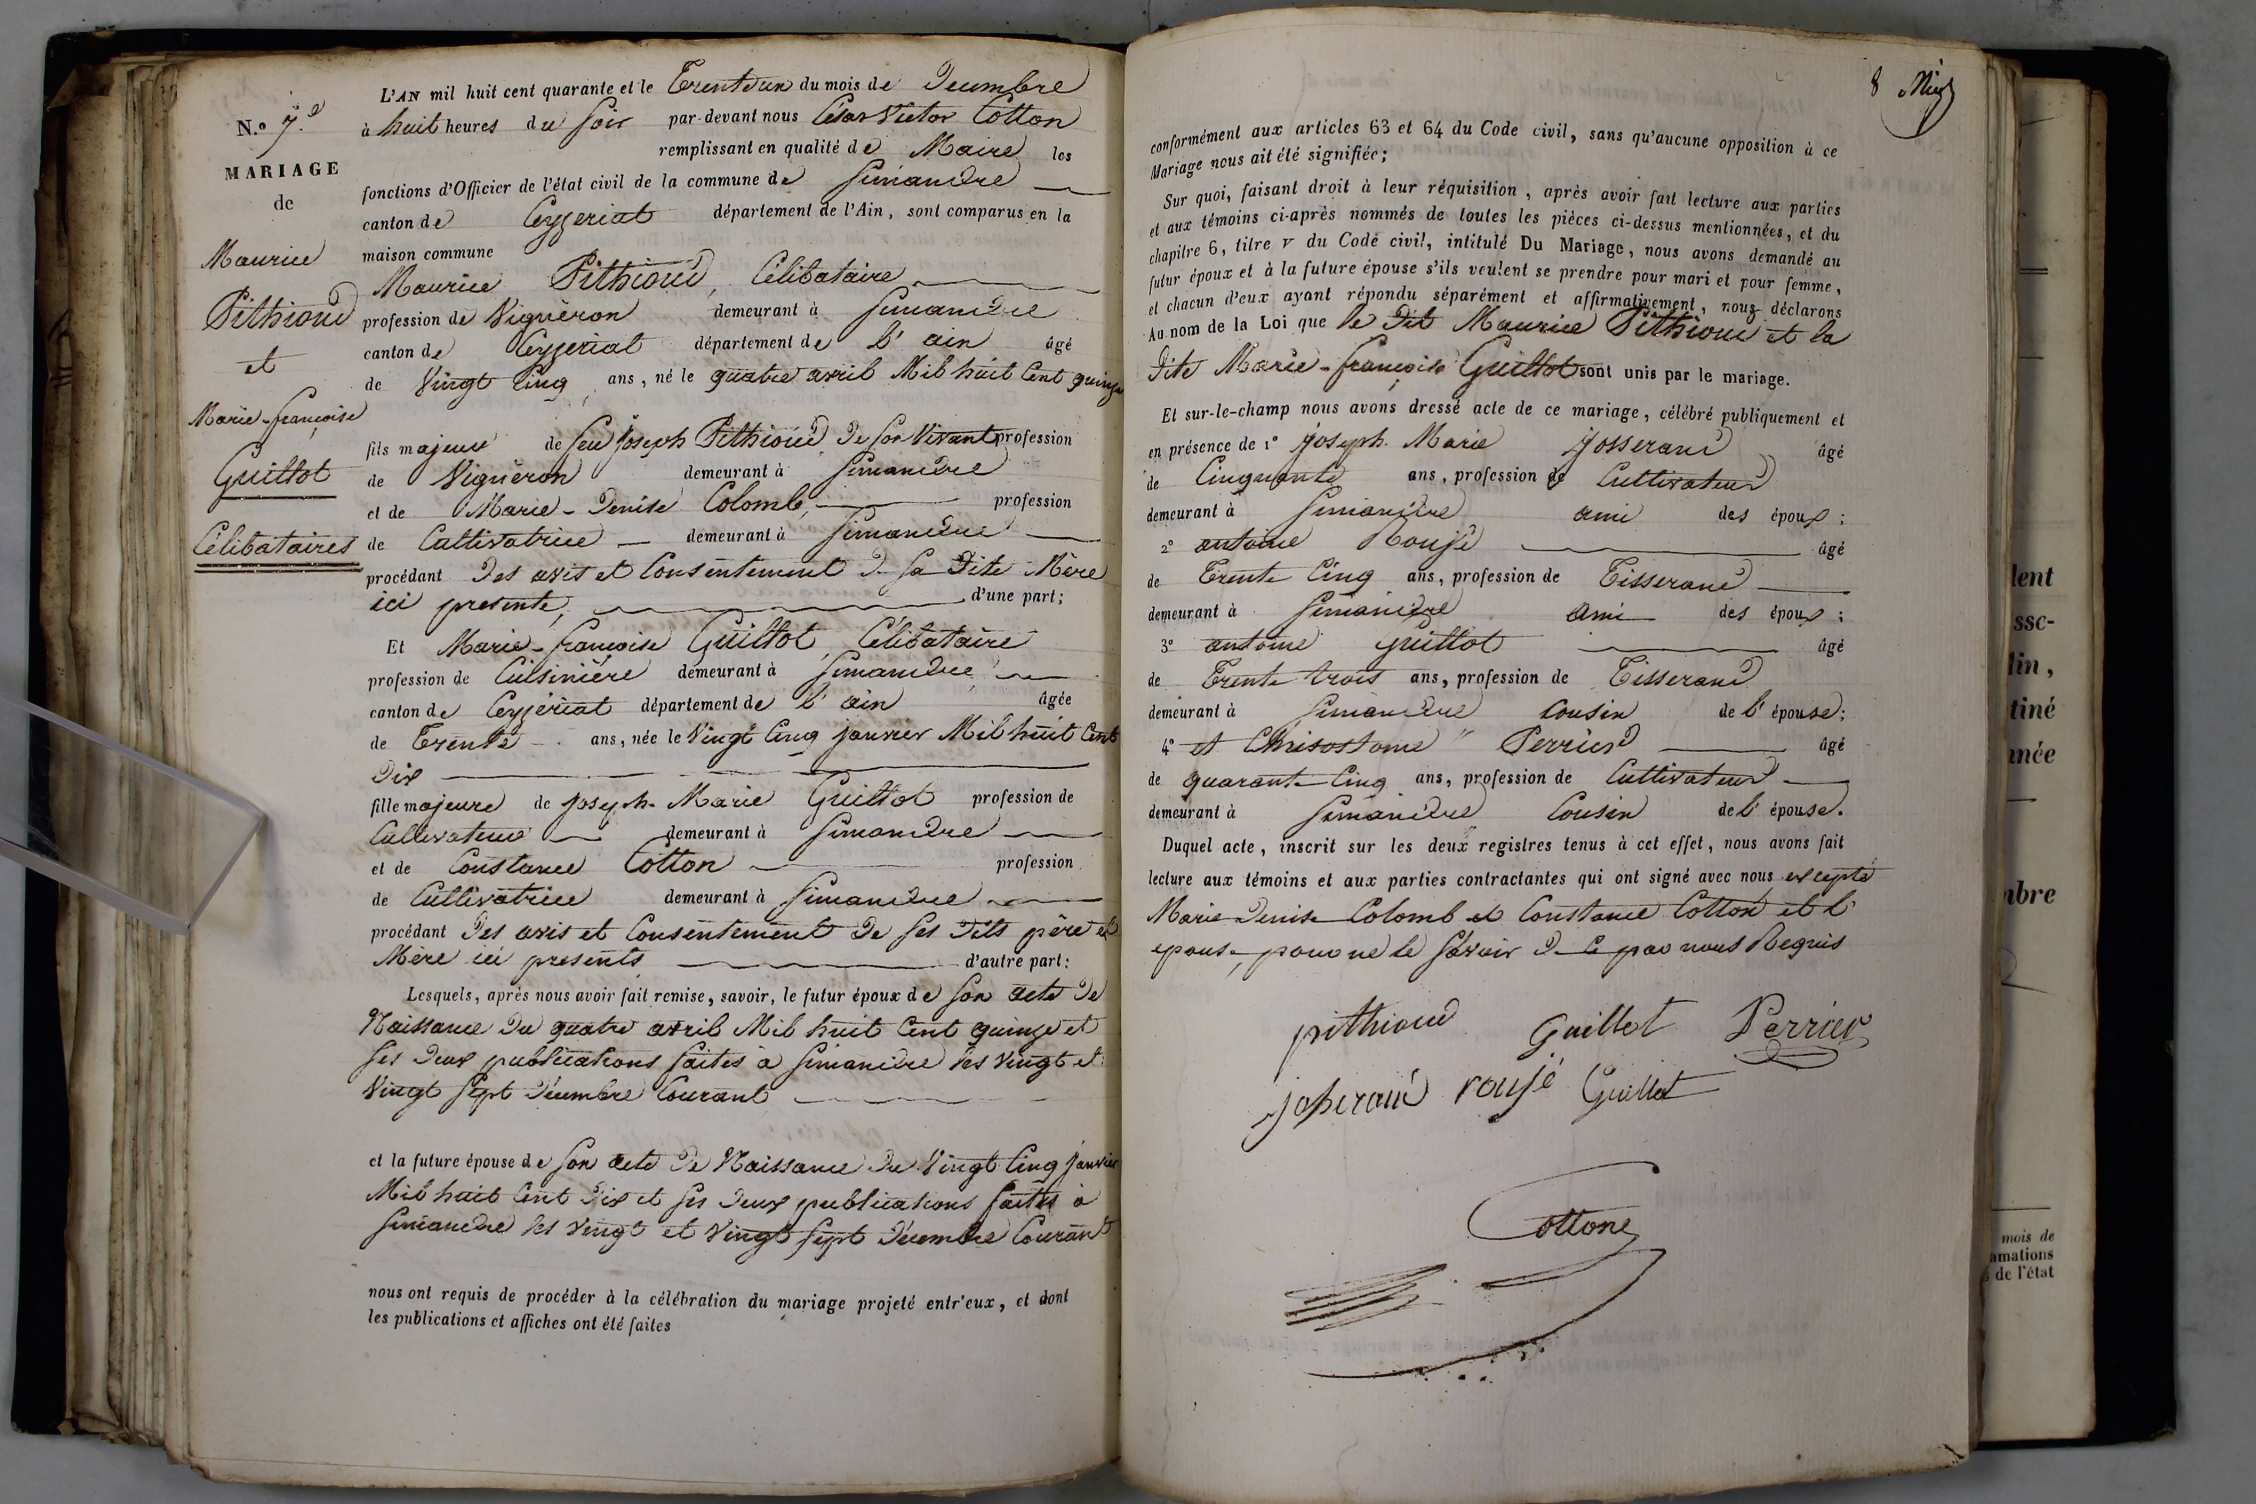 N.o 7.e
MARIAGE
de
Maurice
Pithioud
et
Marie-françoise
Guillot
Célibataires
L'AN mil huit cent quarante et le Trente un du mois de Decembre
à huit heures du soir par-devant nous César Victor Cotton
remplissant en qualité de Maire les
fonctions d'Officier de l'état civil de la commune de Simandre
canton de Ceyzeriat département de l'Ain, sont comparus en la
maison commune
Maurice Pithioud, Célibataire
profession de Vigneron demeurant à Simandre
canton de Ceyzeriat département de l'ain âgé
de Vingt Cinq ans, né le quatre avril Mil huit Cent quinze
fils majeur de feu Joseph Pithioud De son Vivant profession
de Vigneron demeurant à Simandre
et de Marie-Denise Colomb, profession
de Cultivatrice demeurant à Simandre
procédant Des avis et Consentement De Sa Dite Mère
ici presente, d'une part;
Et Marie-françoise Guillot, Célibataire
profession de Cuisinière demeurant à Simandre
canton de Ceyzériat département de l'ain âgée
de Trente ans, née le Vingt Cinq janvier Mil huit Cent
Dix
fille majeure de Joseph-Marie Guillot profession de
Cultivateur demeurant à Simandre
et de Constance Cotton profession
de Cultivatrice demeurant à Simandre
procédant Des avis et Consentement De Ses Dits père et
Mère ici presents d'autre part:
Lesquels, après nous avoir fait remise, savoir, le futur époux de Son acte De
Naissance Du quatre avril Mil huit Cent quinze et
Ses Deux publications faites à Simandre les Vingt et
Vingt Sept Décembre Courant
et la future épouse de Son acte De Naissance Du Vingt Cinq janvier
Mil huit Cent Dix et Ses Deux publications faites à
Simandre les Vingt et Vingt Sept Décembre Courant
nous ont requis de procéder à la célébration du mariage projeté entr'eux, et dont
les publications et affiches ont été faites
8
conformément aux articles 63 et 64 du Code civil, sans qu'aucune opposition à ce
Mariage nous ait été signifiée;
Sur quoi, faisant droit à leur réquisition, après avoir fait lecture aux parties
et aux témoins ci-après nommés de toutes les pièces ci-dessus mentionnées, et du
chapitre 6, titre v du Code civil, intitulé Du Mariage, nous avons demandé au
futur époux et à la future épouse s'ils veulent se prendre pour mari et pour femme,
et chacun d'eux ayant répondu séparément et affirmativement, nous déclarons
Au nom de la Loi que le Dit Maurice Pithioud et la
Dite Marie-françoise Guillot sont unis par le mariage.
Et sur-le-champ nous avons dressé acte de ce mariage, célébré publiquement et
en présence de 1° Joseph-Marie Josserand âgé
de Cinquante ans, profession de Cultivateur
demeurant à Simandre ami des époux;
2° antoine Roujé âgé
de Trente Cinq ans, profession de Tisserand
demeurant à Simandre ami des époux;
3° antoine guillot âgé
de Trente trois ans, profession de Tisserand
demeurant à Simandre Cousin de l'épouse;
4° et Chrisostome Perrier âgé
de quarante Cinq ans, profession de Cultivateur
demeurant à Simandre Cousin de l'épouse.
Duquel acte, inscrit sur les deux registres tenus à cet effet, nous avons fait
lecture aux témoins et aux parties contractantes qui ont signé avec nous excepté
Marie Denise Colomb et Constance Cotton et l'
epouse, pour ne le Savoir De Ce par nous Requis
pithioud Guillot Perrier
josserand roujé Guillot
Cotton
lent
sse-
lin,
tiné
nnée
mbre
mois de
amations
de l'état